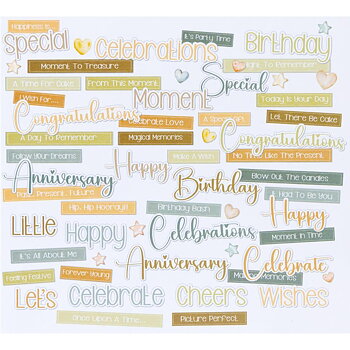 Happiness is
It's Party Time
Special
Celebrations
Birthday
Moment To Treasure
To Remember
A Time For Cake
From This Moment
Special
Wish For....
Moment
Today Is Your Day
Congratulations
Celebrate Love
A Special Gift
Let There Be Cake
A Day To Remember
Magical Memories
Congratulations
Follow Your Dreams
Make A Wish
No Time Like The Present
Happy
Anniversary
Birthday
Blow Out The Candles
Past, Present, Future
It Had To Be You
Hip, Hip Hooray!!
Birthday Bash
Happy
Little
Happy
Celebrations
Moment In Time
It's All About Me
Anniversary
Celebrate
Feeling Festive
Forever Young
Memories
Let's
Celebrate
Cheers
Wishes
Once Upon A Time...
Picture Perfect